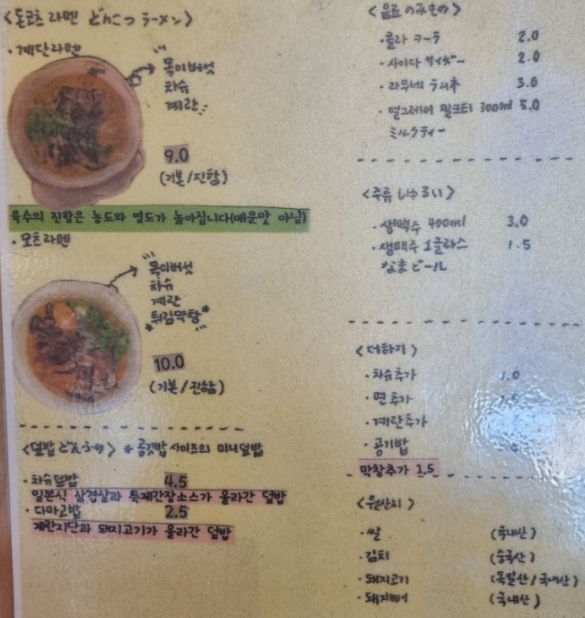 <돈코츠 라멘 どんこつ ラーメン>
·계단라멘
목이버섯
차슈
계란
9.0
(기본/진함)
육수의 진함은 농도와 염도가 높아집니다(매운맛 아님)
·모츠라멘
목이버섯
차슈
계란
*튀김막창*
10.0
(기본/진함)
<덮밥 どんぶり> * 공깃밥 사이즈의 미니덮밥
·차슈덮밥 4.5
일본식 삼겹살과 특제간장소스가 올라간 덮밥
·다마고밥 2.5
계란지단과 돼지고기가 올라간 덮밥
<음료 のみもの>
·콜라 コーラ 2.0
·사이다 サイダー 2.0
·라무네 ラムネ 3.0
·얼그레이 밀크티 300ml 5.0
ミルクティー
<주류 しゅるい>
·생맥주 400ml 3.0
·생맥주 1글라스 1.5
なまビール
<더하기>
·차슈추가 1.0
·면추가
·계란추가
·공기밥
막창추가 1.5
<원산지>
·쌀 (국내산)
·김치 (중국산)
·돼지고기 (독일산/국내산)
·돼지뼈 (국내산)